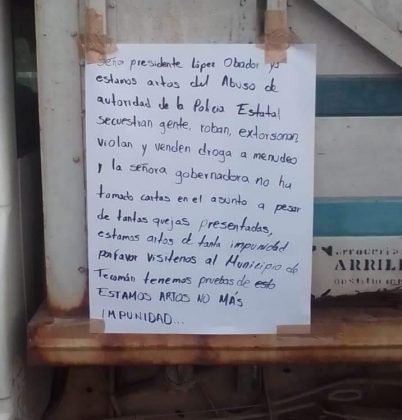 Seño presidente López Obador ya
estamos artos del Abuso de
autoridad de la Policia Estatal
secuestran gente, roban, extorsionan,
violan y venden droga a menudeo
y la señora gobernadora no ha
tomado cartas en el asunto a pesar
de tantas quejas presentadas,
estamos artos d tanta impunidad
porfavor visitenos al Municipio de
Tecomán tenemos pruebas de esto
ESTAMOS ARTOS NO MÁS
IMPUNIDAD...
ARRILL